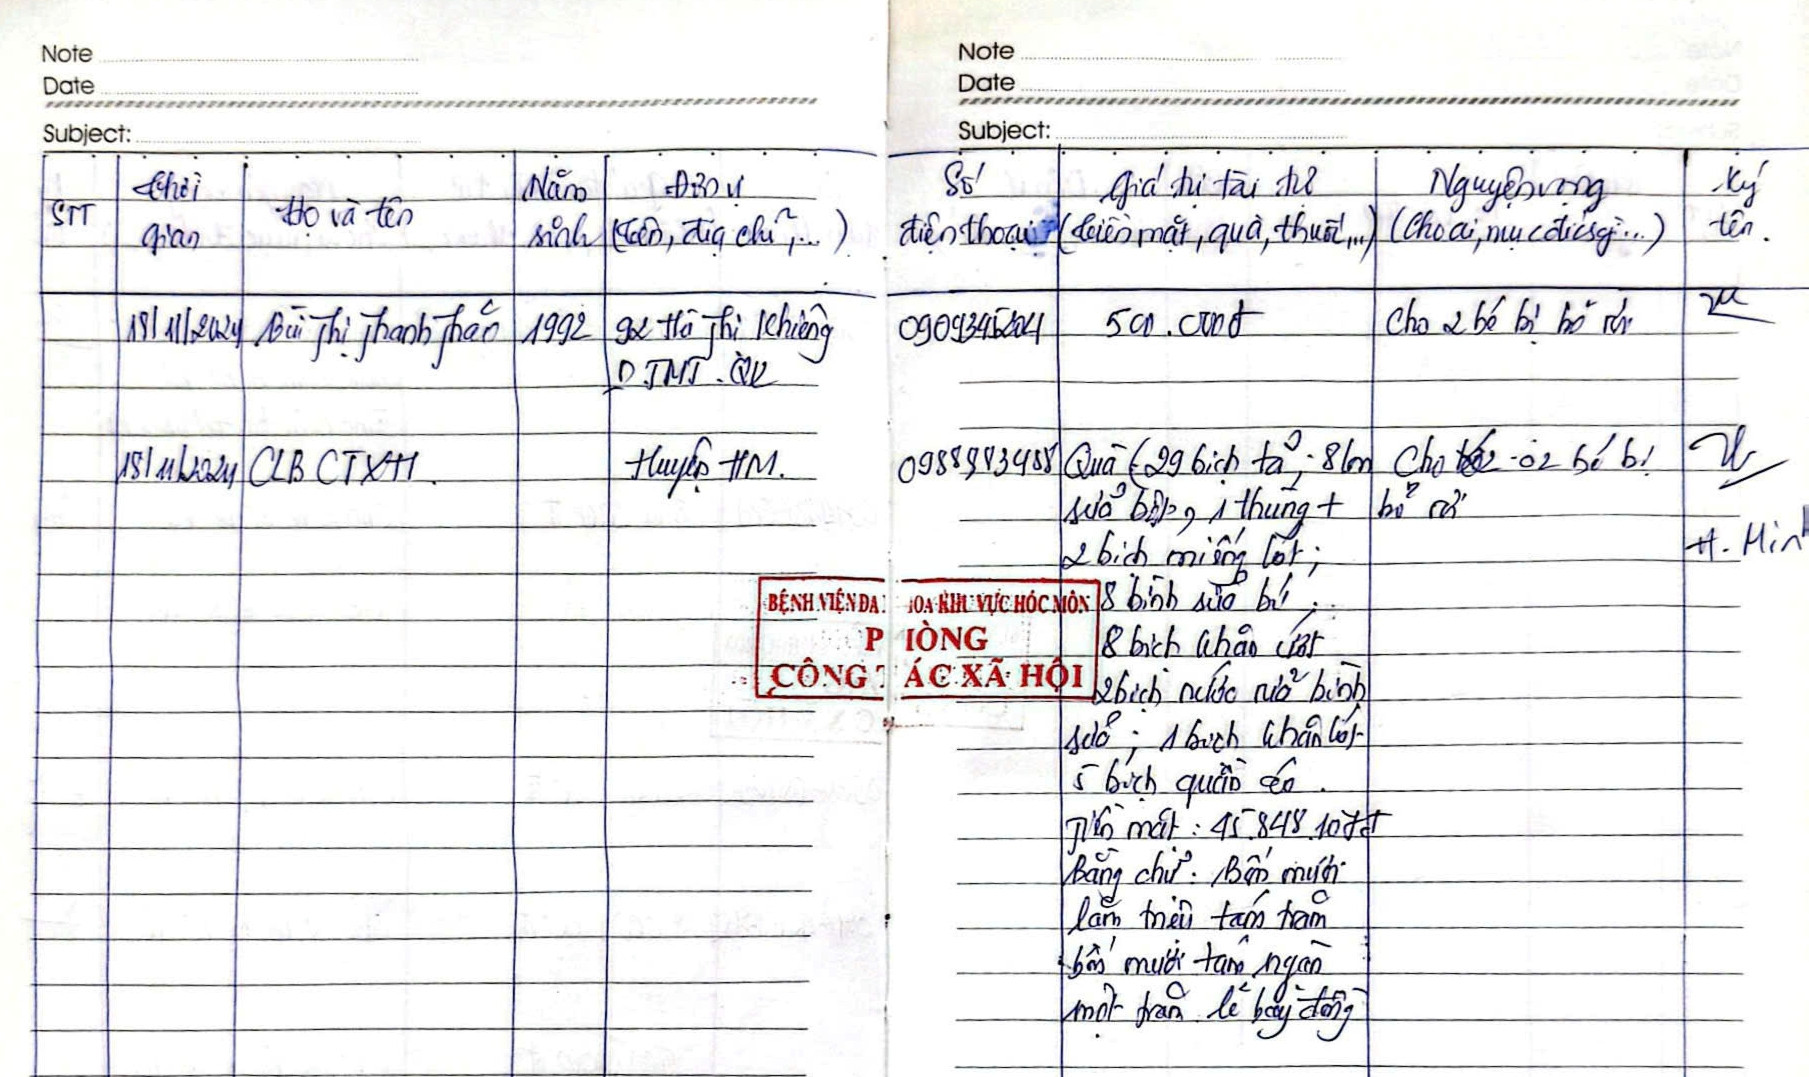 Note
Date
Subject:
Note
Date
Subject:
STT
Thời gian
Họ và tên
Năm sinh
Đơn vị (tên, địa chỉ,...)
Số điện thoại
Giá trị tài trợ (tiền mặt, quà, thuốc,...)
Nguyện vọng (Cho ai, mục đích gì...)
Ký tên.
18/11/2024
Bùi Thị Thanh Thảo
1992
92 Hồ Thị Khiêng
Đ TMT. QK
500.000đ
Cho 2 bé bị bỏ rơi
18/11/2024
CLB CTXH.
Huyện HM.
0988983488
Quà (29 bịch tả; 8 lon
sữa bột, 1 thùng +
2 bịch miếng lót;
8 bình sữa bú;
8 bịch khăn ướt
2 bịch nước rửa bình
sữa; 1 bịch khăn lót
5 bịch quần áo.
Tiền mặt: 45.848.107đ
Bằng chữ: Bốn mươi
lăm triệu tám trăm
bốn mươi tám ngàn
một trăm lẻ bảy đồng
Cho 02 bé bị
bỏ rơi
H. Minh
BỆNH VIỆN ĐA KHOA KHU VỰC HÓC MÔN
PHÒNG
CÔNG TÁC XÃ HỘI